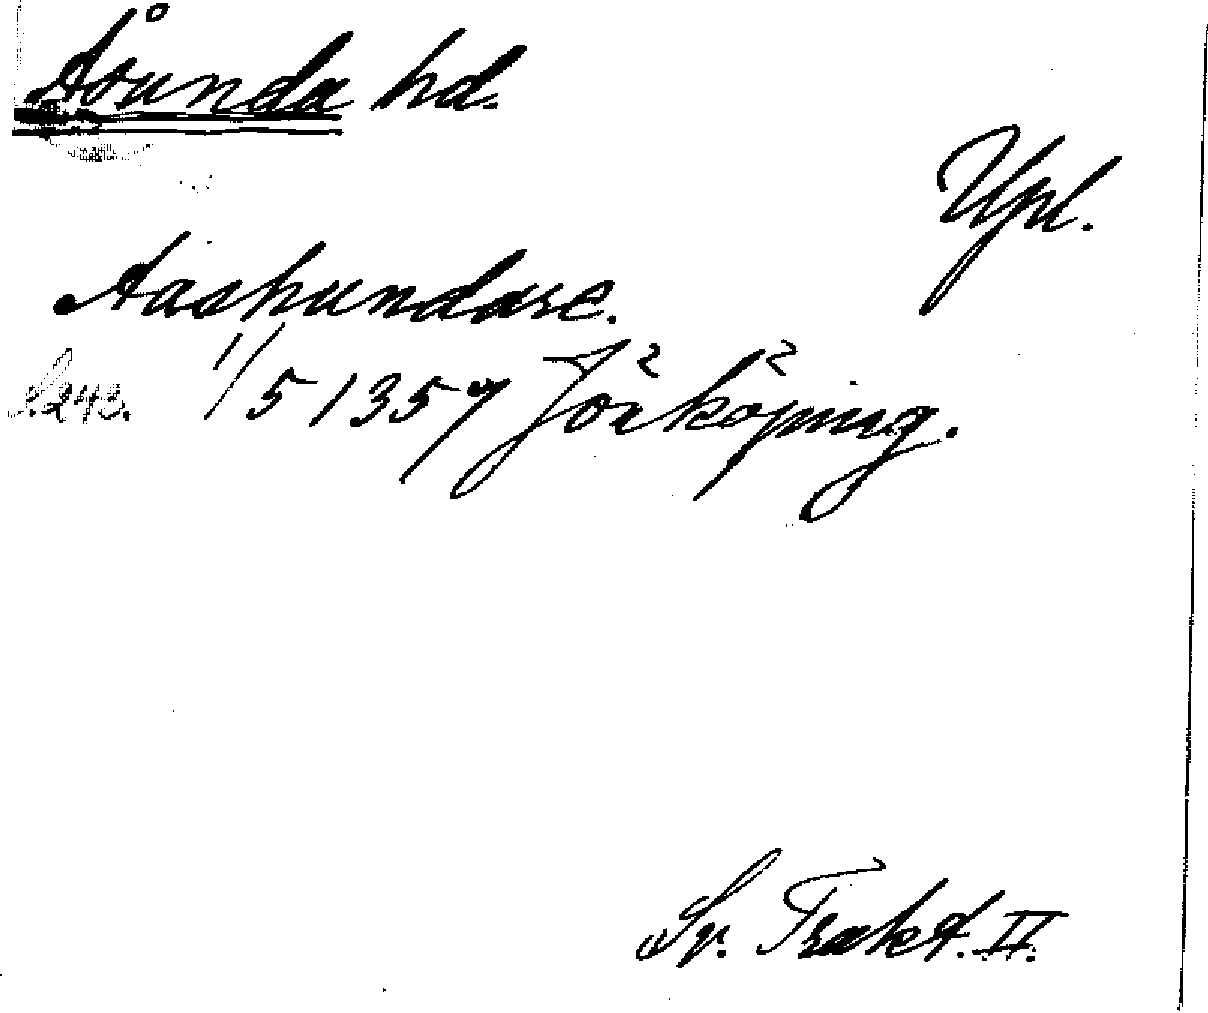 Åsunda hd.
Upl.
Aashundare.
S. 243. 1/5 1357 Jönköping.
Sv. Trakt. II.